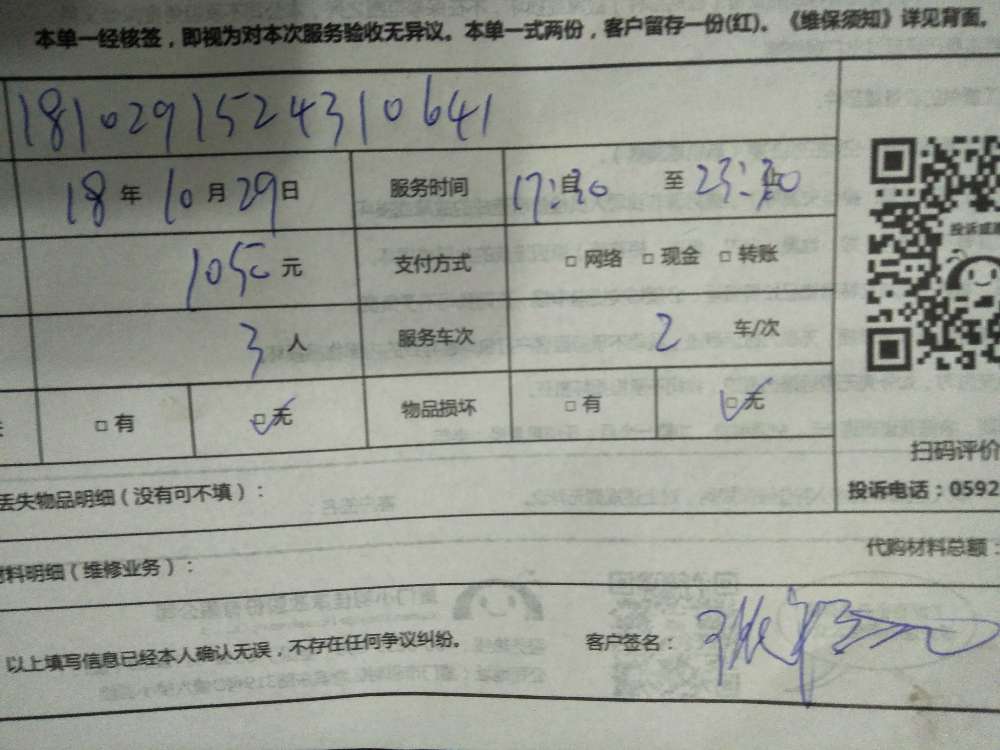 本单一经核签，即视为对本次服务验收无异议。本单一式两份，客户留存一份(红)。《维保须知》详见背面。
1810291524310641
18年10月29日 服务时间 17:30 至 23:30
1050元 支付方式 □网络 □现金 □转账
3人 服务车次 2 车/次
□有 □无 物品损坏 □有 □无
投诉或
扫码评价
丢失物品明细（没有可不填）：
投诉电话：0592
代购材料总额：
材料明细（维修业务）：
以上填写信息已经本人确认无误，不存在任何争议纠纷。 客户签名：